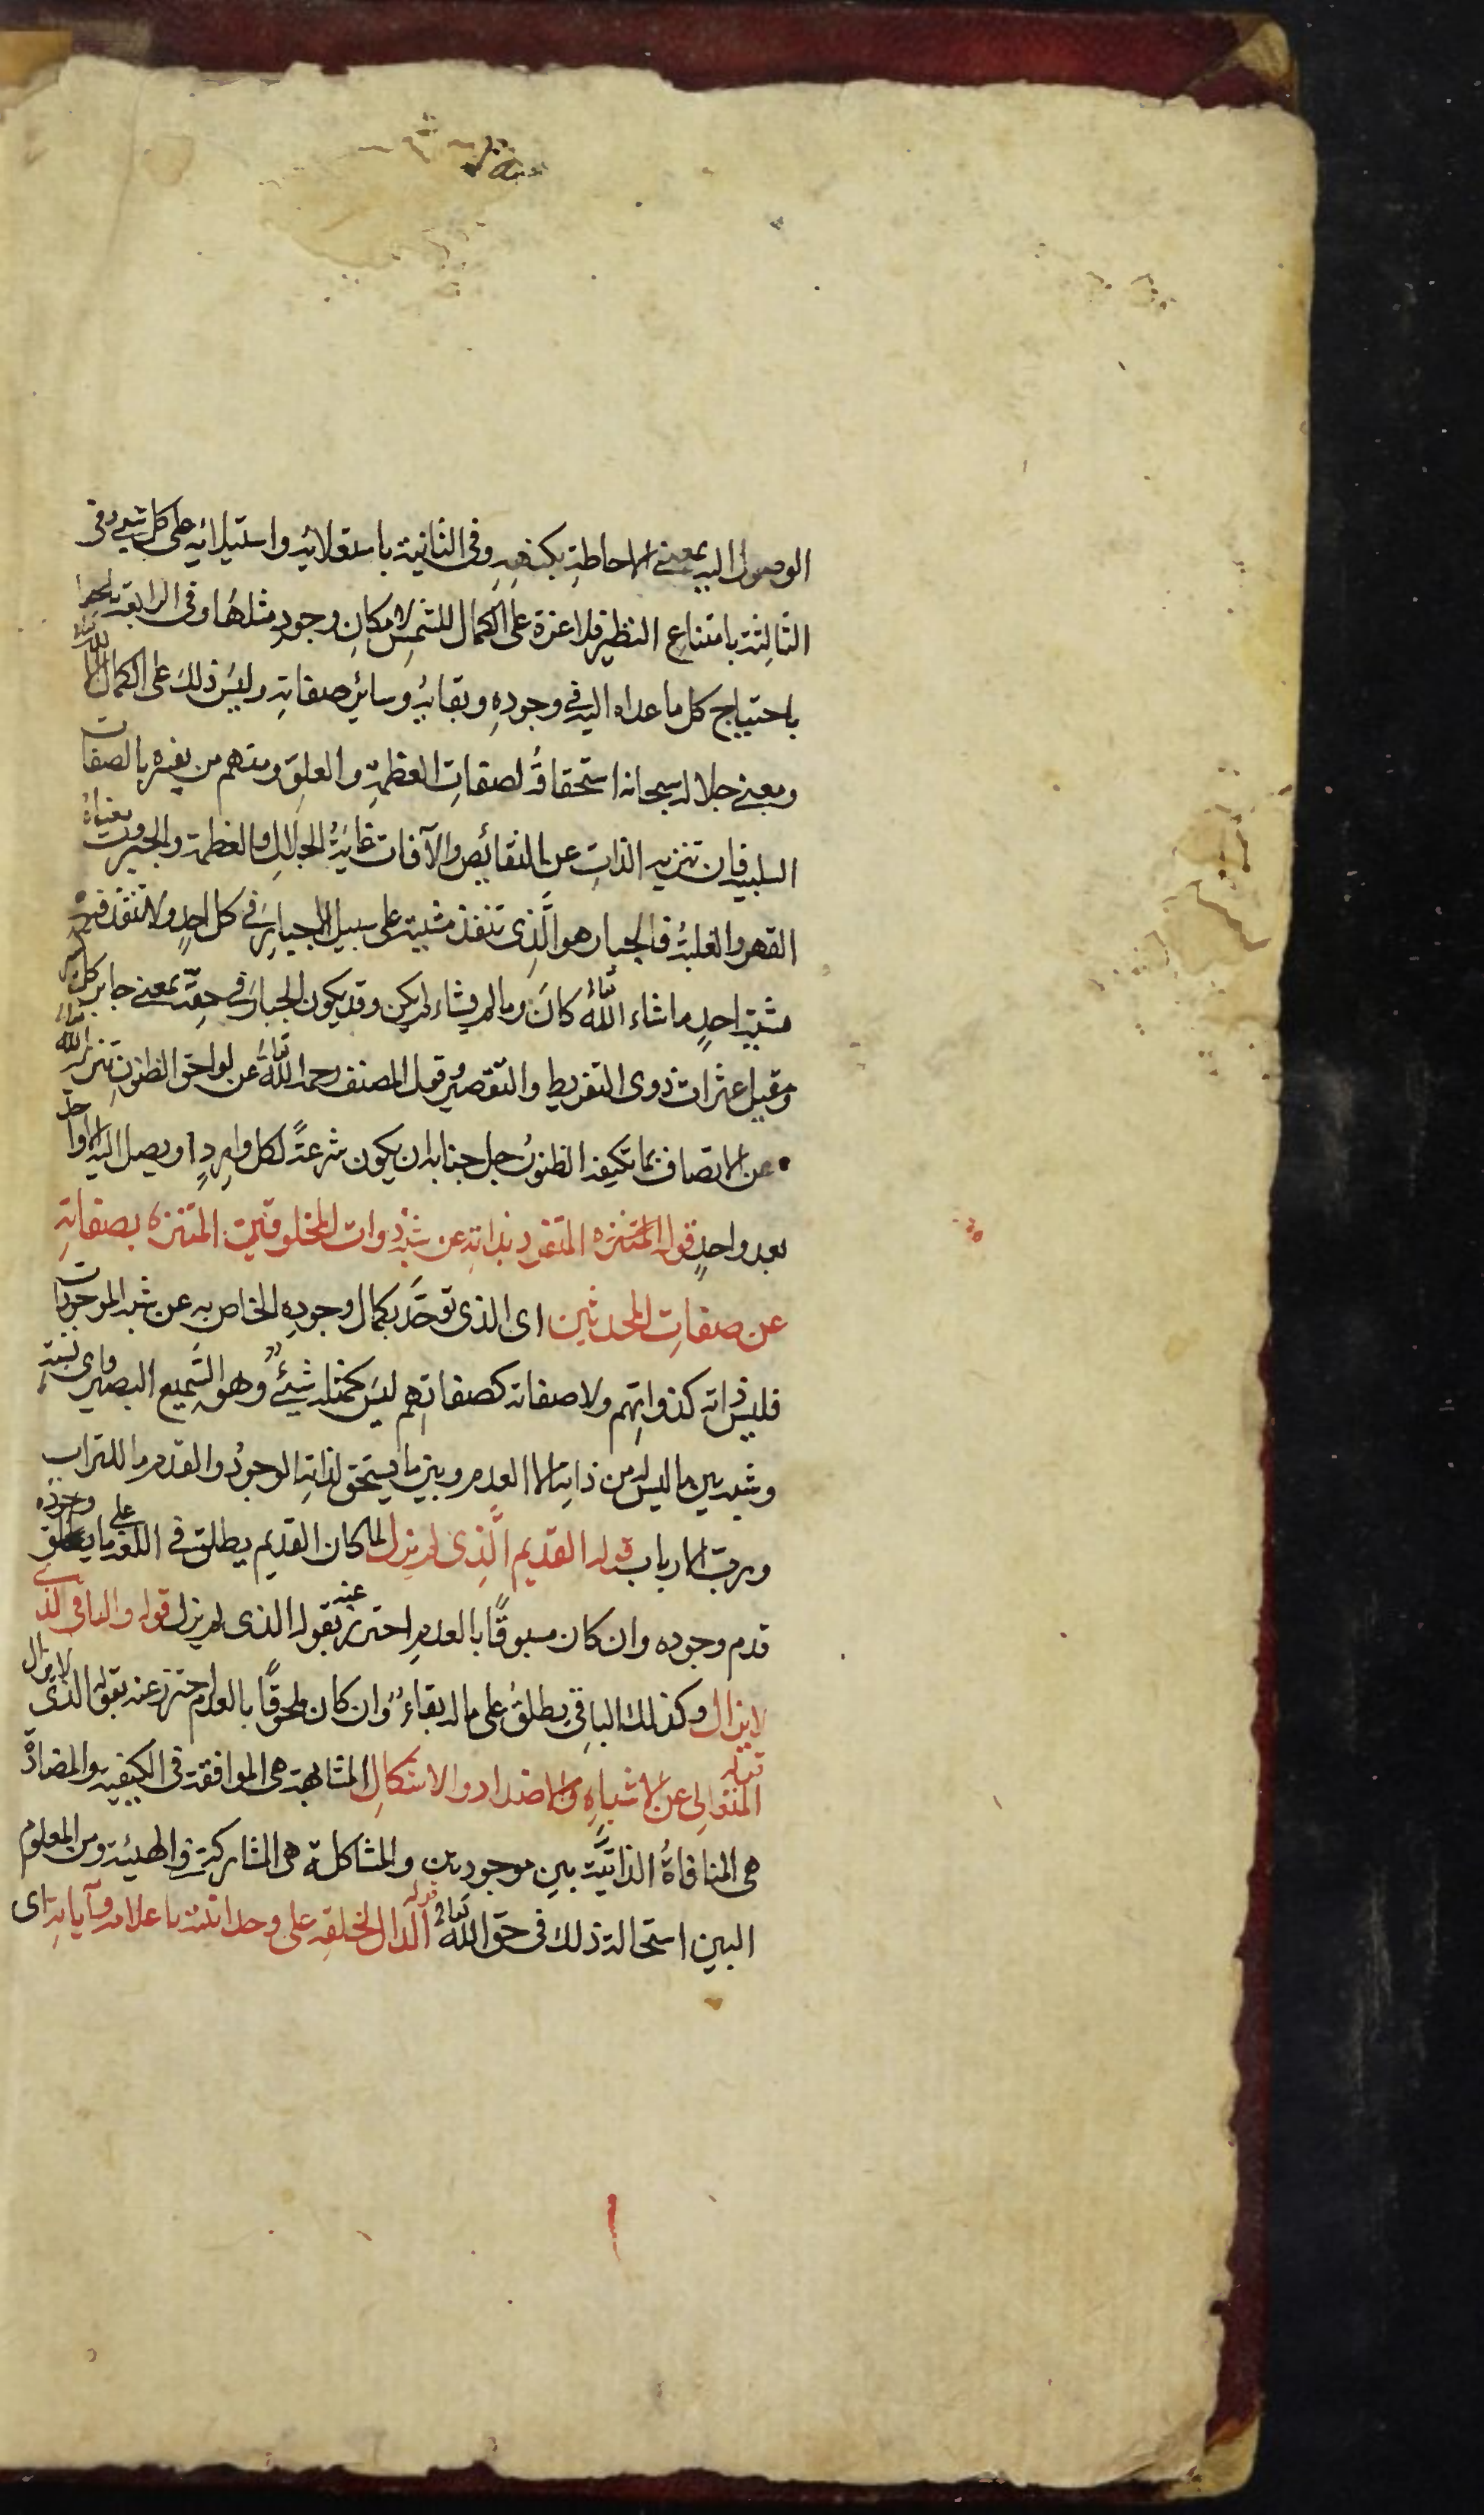 الوصول اليه بمعنى الاحاطة بكنهه وفى الثانية باستعلائه واستيلائه على كل شيء وفى
الثالثة بامتناع النظير فلا عزة على الكمال للشمس لامكان وجود مثلها وفى الرابعة
باحتياج كل ما عداه اليه في وجوده وبقائه وسائر صفاته وليس ذلك على الكمال الا لله تعالى
ومعنى جلاله سبحانه استحقاقه لصفات العظمة والعلو ومنهم من يفسره بالصفات
السلبية فان تنزيه الذات عن النقائص والآفات غاية الجلال والعظمة والجبروت معناه
القهر والغلبة فالجبار هو الَّذِى تنفذ مشيته على سبيل الاجبار في كل احدٍ ولا تنفذ فيه
مشية احدٍ ما شاء الله تعالى كانَ وما لم يشاء لم يكن وقد يكون الجبار في حقه بمعنى جابر كل كسير
ومقيل عثرات ذوى التفريط والتقصير وقول المصنف رحمه الله تعالى عن لواحق الظنون تنزيه الله تعالى
عن الاتصاف بما تكيفه الظنون جل جنابه ان يكون شرعةً لكل واردٍ او يصل اليه الا واحد
بعد واحدٍ قوله المتنزه المتفرد بذاته عن شبه ذوات المخلوقين المتنزه بصفاته
عن صفاتِ المحدثين اى الذى توحَّد بكمال وجوده الخاص به عن شبه الموجودات
فليس ذاته كذواتهم ولا صفاته كصفاتهم ليس كمثله شيئ وهو السَّميع البصير واى نسبة
وشبه بين ما ليس له من ذاته الا العدم وبين ما يستحق لذاته الوجود والقدم ما للتراب
ورب الارباب قوله القديم الَّذِى لم يزل لما كان القديم يطلق في اللغة على ما يعلق وجوده
قدم وجوده وان كان مسبوقًا بالعدم احترز عنه بقوله الذى لم يزل قوله والباقى الذى
لا يزال وكذلك الباقى يطلق على ما له بقاء وان كان ملحوقًا بالعدم احترز عنه بقوله الذى لا يزال
قوله المتعالى عن الاشباه والاضداد والاشكال المشابهة هى الموافقة فى الكيفية والمضادة
هى المنافاة الذاتيَّة بين موجودين والمشاكلة هى المشاركة في الهيئة ومن المعلوم
البين استحالة ذلك فى حق الله تعالى قوله الدال لخلقه على وحدانيته باعلامه وآياته اى